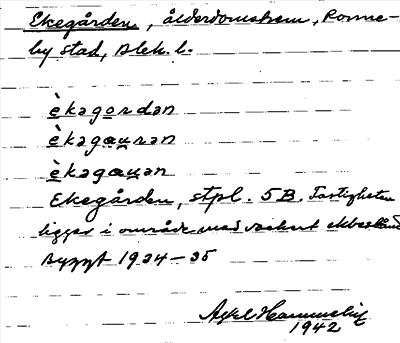 Ekegården, ålderdomshem, Ronne-
by stad, Blek. l.
èkagordan
èkagæuran
èkagæuan
Ekegården, stpl. 5B. Fastigheten
ligger i område med vackert ekbestånd
Byggt 1934-35
Axel Hammelin
1942